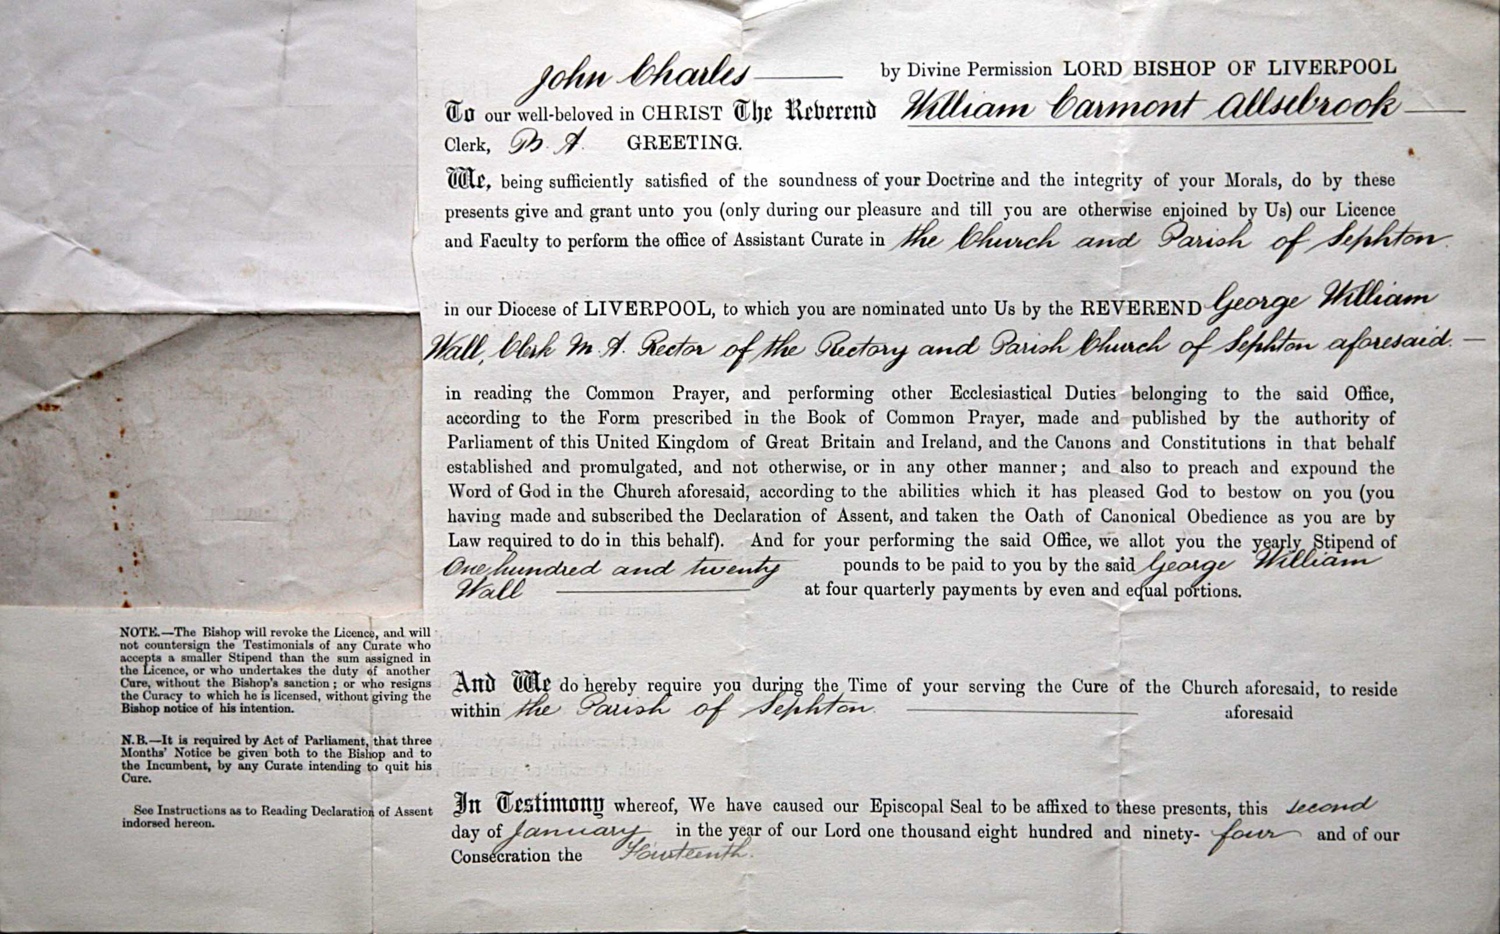 John Charles by Divine Permission LORD BISHOP OF LIVERPOOL
To our well-beloved in CHRIST The Reverend William Carmont Allsebrook
Clerk, B. A. GREETING.
We, being sufficiently satisfied of the soundness of your Doctrine and the integrity of your Morals, do by these
presents give and grant unto you (only during our pleasure and till you are otherwise enjoined by Us) our Licence
and Faculty to perform the office of Assistant Curate in the Church and Parish of Sephton
in our Diocese of LIVERPOOL, to which you are nominated unto Us by the REVEREND George William
Wall, Clerk M. A. Rector of the Rectory and Parish Church of Sephton aforesaid.
in reading the Common Prayer, and performing other Ecclesiastical Duties belonging to the said Office,
according to the Form prescribed in the Book of Common Prayer, made and published by the authority of
Parliament of this United Kingdom of Great Britain and Ireland, and the Canons and Constitutions in that behalf
established and promulgated, and not otherwise, or in any other manner; and also to preach and expound the
Word of God in the Church aforesaid, according to the abilities which it has pleased God to bestow on you (you
having made and subscribed the Declaration of Assent, and taken the Oath of Canonical Obedience as you are by
Law required to do in this behalf). And for your performing the said Office, we allot you the yearly Stipend of
One hundred and twenty pounds to be paid to you by the said George William
Wall at four quarterly payments by even and equal portions.
NOTE.—The Bishop will revoke the Licence, and will
not countersign the Testimonials of any Curate who
accepts a smaller Stipend than the sum assigned in
the Licence, or who undertakes the duty of another
Cure, without the Bishop's sanction; or who resigns
the Curacy to which he is licensed, without giving the
Bishop notice of his intention.
N.B.—It is required by Act of Parliament, that three
Months' Notice be given both to the Bishop and to
the Incumbent, by any Curate intending to quit his
Cure.
See Instructions as to Reading Declaration of Assent
indorsed hereon.
And We do hereby require you during the Time of your serving the Cure of the Church aforesaid, to reside
within the Parish of Sephton. aforesaid
In Testimony whereof, We have caused our Episcopal Seal to be affixed to these presents, this second
day of January in the year of our Lord one thousand eight hundred and ninety- four and of our
Consecration the Fourteenth.